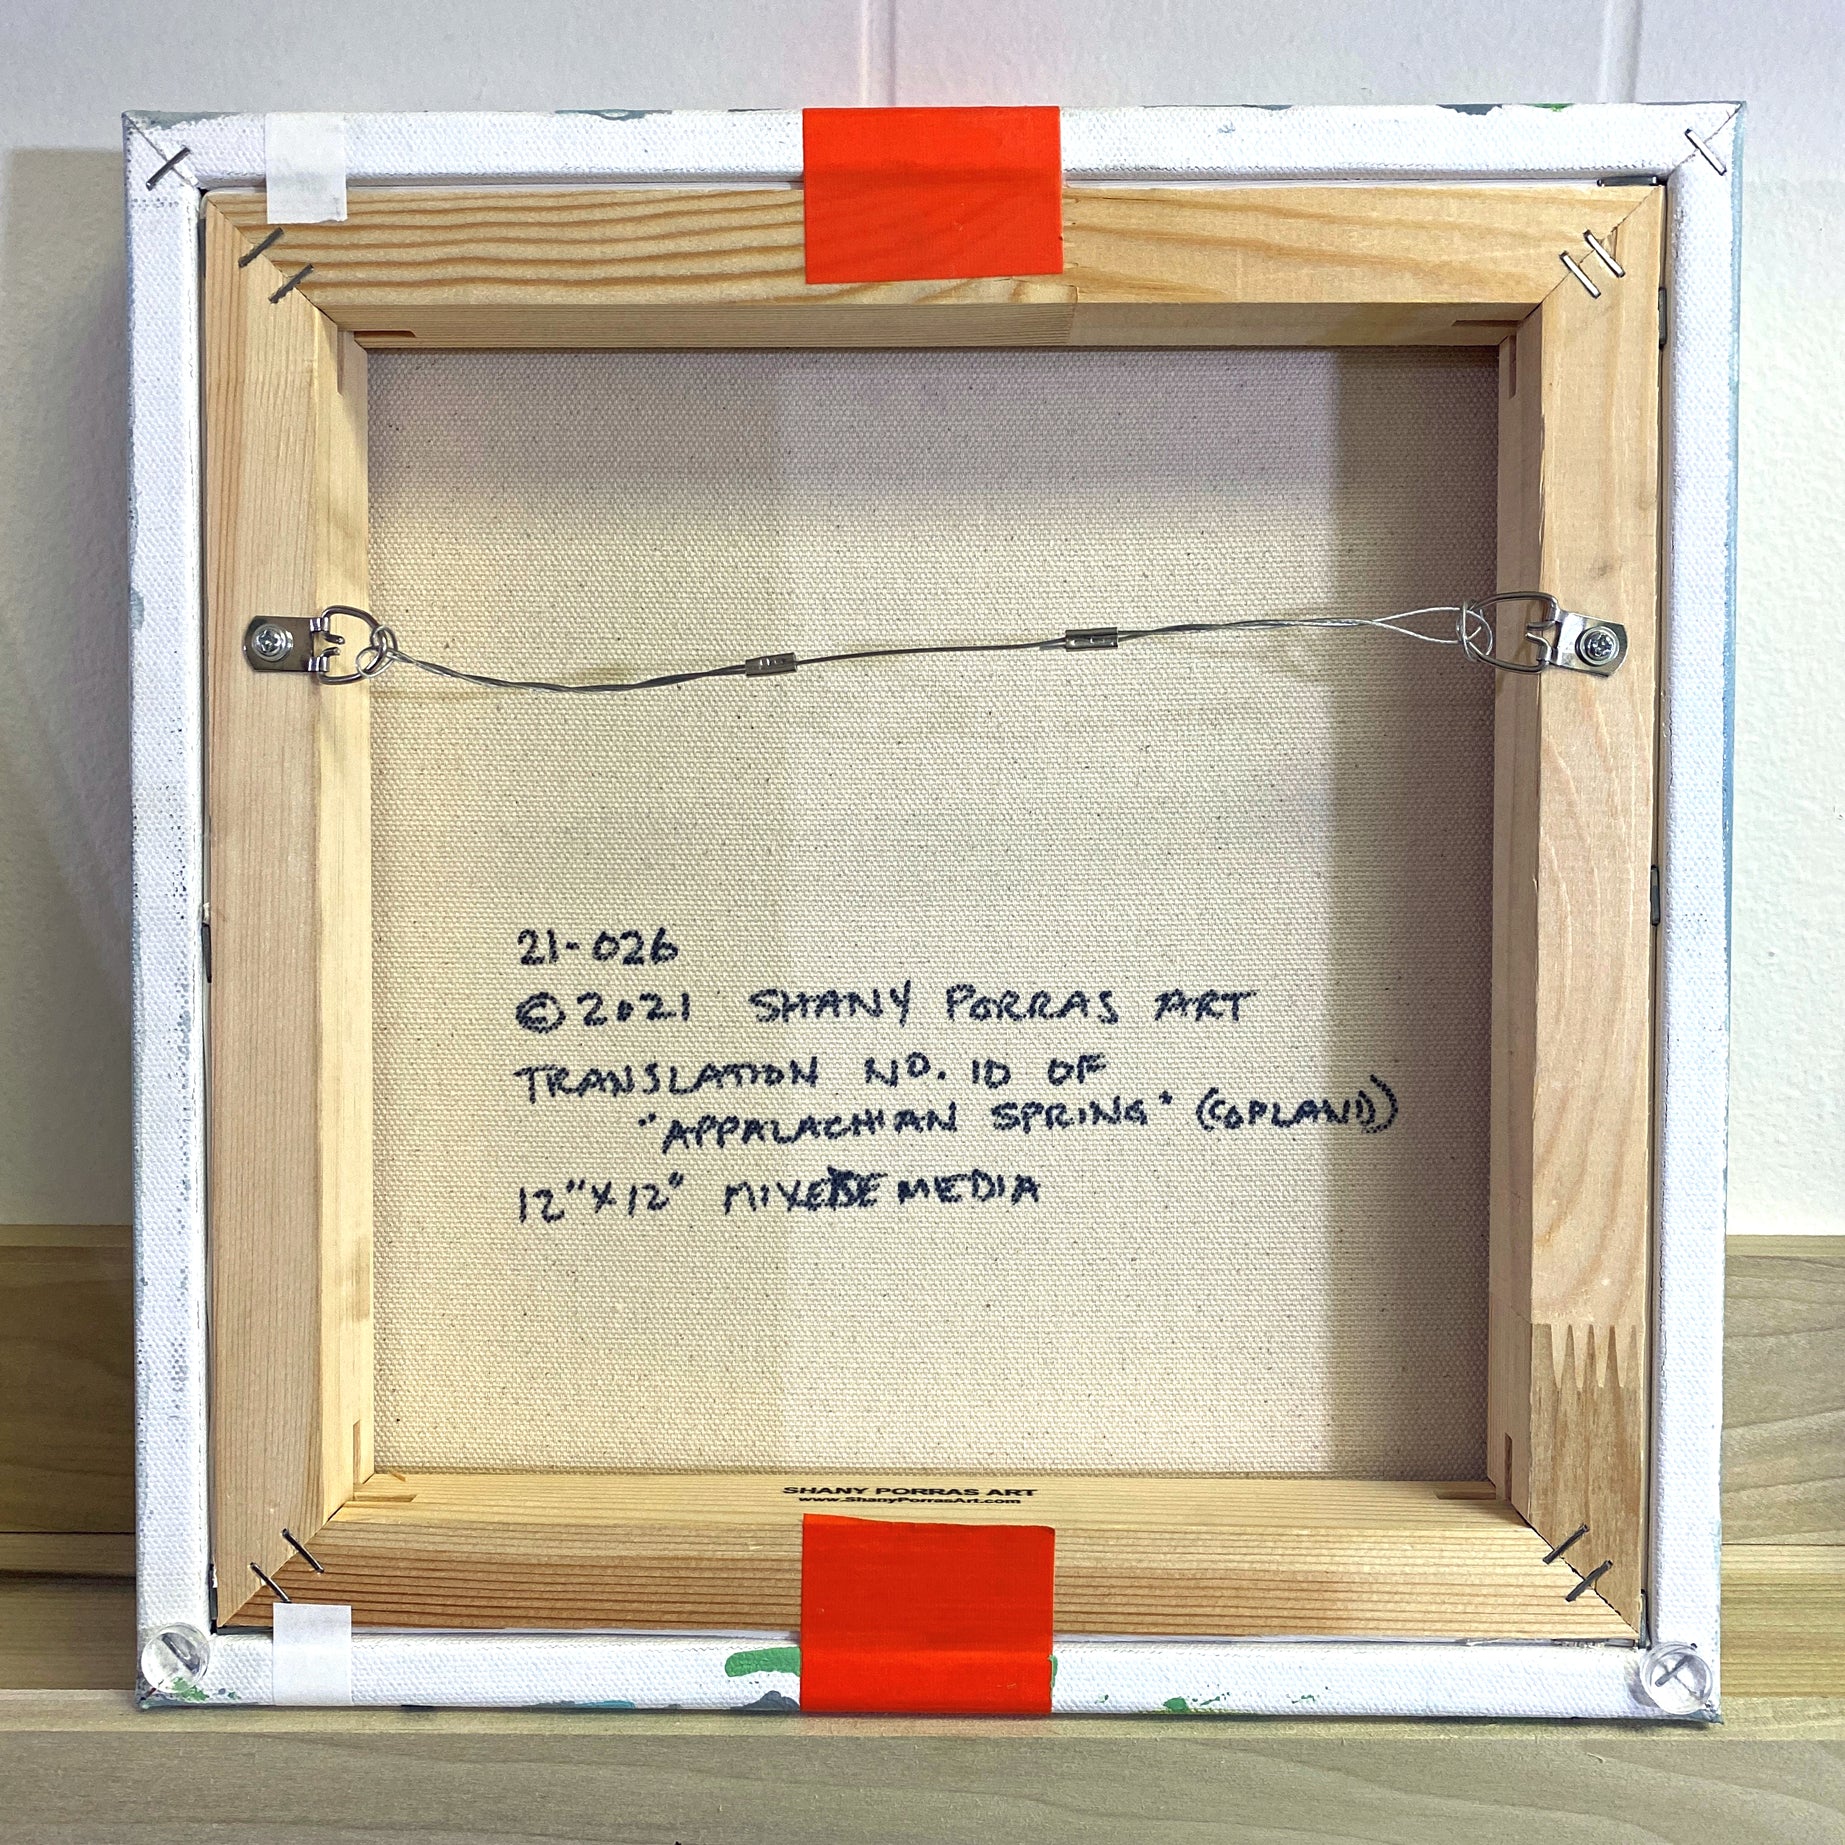 21-026
©2021 SHANY PORRAS ART
TRANSLATION NO. 10 OF
"APPALACHIAN SPRING" (COPLAND)
12"X12" MIXED MEDIA
SHANY PORRAS ART
www.ShanyPorrasArt.com